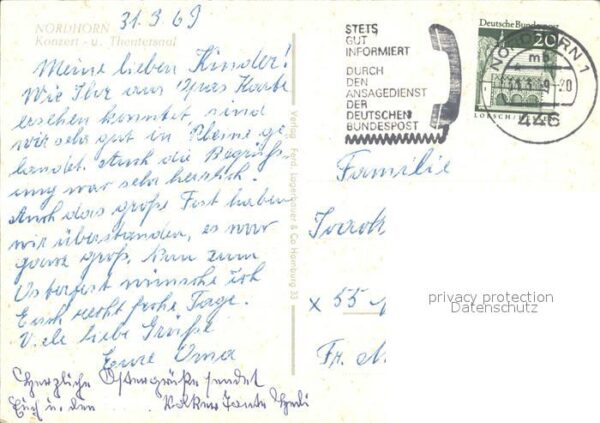 31.3.69
NORDHORN
Konzert - u. Theatersaal
Meine lieben Kinder!
Wie Ihr aus Karte
ersehen konntet, sind
wir sehr gut in ge
landet. Auch die Begrüß
ung war sehr herzlich.
Auch das große Fest haben
wir überstanden, es war
ganz groß. Nun zum
Osterfest wünsche ich
Euch recht frohe Tage.
Viele liebe Grüße
Eure Oma
Herzliche Ostergrüße sendet
Euch u. den Tante
Verlag Ferd. Lagerbauer & Co Hamburg 33
STETS
GUT
INFORMIERT
DURCH
DEN
ANSAGEDIENST
DER
DEUTSCHEN
BUNDESPOST
Deutsche Bundespost
20
LORSCH/
NORDHORN 1
mb
446
Familie
x 55
Fr.
privacy protection
Datenschutz